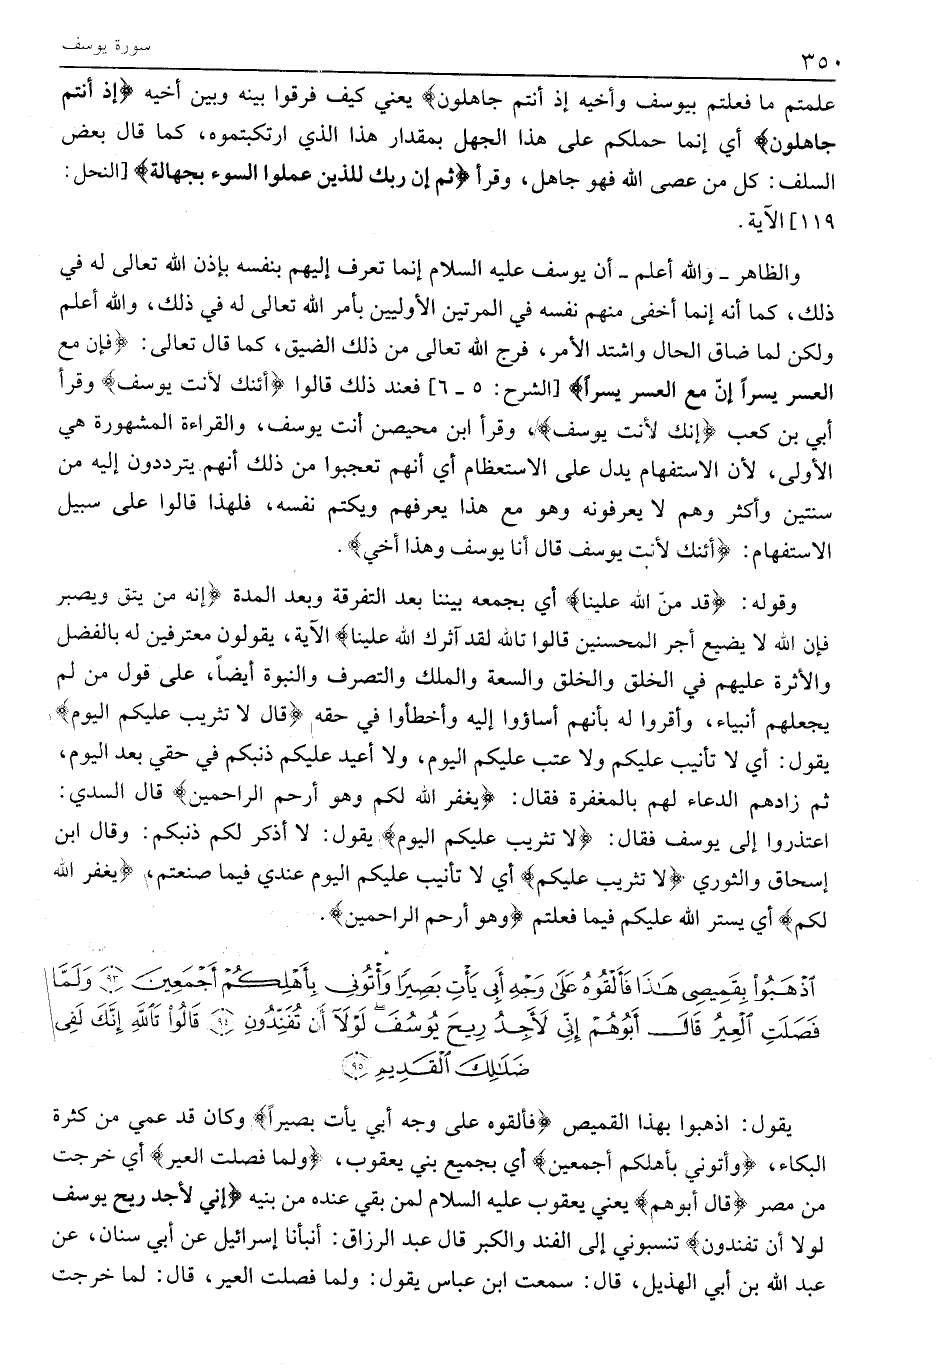 ٣٥٠ سورة يوسف
علمتم ما فعلتم بيوسف وأخيه إذ أنتم جاهلون﴾ يعني كيف فرقوا بينه وبين أخيه ﴿إذ أنتم
جاهلون﴾ أي إنما حملكم على هذا الجهل بمقدار هذا الذي ارتكبتموه، كما قال بعض
السلف: كل من عصى الله فهو جاهل، وقرأ ﴿ثم إن ربك للذين عملوا السوء بجهالة﴾ [النحل:
١١٩] الآية.
والظاهر ـ والله أعلم ـ أن يوسف عليه السلام إنما تعرف إليهم بنفسه بإذن الله تعالى له في
ذلك، كما أنه إنما أخفى منهم نفسه في المرتين الأوليين بأمر الله تعالى له في ذلك، والله أعلم
ولكن لما ضاق الحال واشتد الأمر، فرج الله تعالى من ذلك الضيق، كما قال تعالى: ﴿فإن مع
العسر يسراً إنّ مع العسر يسراً﴾ [الشرح: ٥ ـ ٦] فعند ذلك قالوا ﴿أئنك لأنت يوسف﴾ وقرأ
أبي بن كعب ﴿إنك لأنت يوسف﴾، وقرأ ابن محيصن أنت يوسف، والقراءة المشهورة هي
الأولى، لأن الاستفهام يدل على الاستعظام أي أنهم تعجبوا من ذلك أنهم يترددون إليه من
سنتين وأكثر وهم لا يعرفونه وهو مع هذا يعرفهم ويكتم نفسه، فلهذا قالوا على سبيل
الاستفهام: ﴿أئنك لأنت يوسف قال أنا يوسف وهذا أخي﴾.
وقوله: ﴿قد منّ الله علينا﴾ أي بجمعه بيننا بعد التفرقة وبعد المدة ﴿إنه من يتق ويصبر
فإن الله لا يضيع أجر المحسنين قالوا تالله لقد آثرك الله علينا﴾ الآية، يقولون معترفين له بالفضل
والأثرة عليهم في الخلق والخلق والسعة والملك والتصرف والنبوة أيضاً، على قول من لم
يجعلهم أنبياء، وأقروا له بأنهم أساؤوا إليه وأخطأوا في حقه ﴿قال لا تثريب عليكم اليوم﴾
يقول: أي لا تأنيب عليكم ولا عتب عليكم اليوم، ولا أعيد عليكم ذنبكم في حقي بعد اليوم،
ثم زادهم الدعاء لهم بالمغفرة فقال: ﴿يغفر الله لكم وهو أرحم الراحمين﴾ قال السدي:
اعتذروا إلى يوسف فقال: ﴿لا تثريب عليكم اليوم﴾ يقول: لا أذكر لكم ذنبكم: وقال ابن
إسحاق والثوري ﴿لا تثريب عليكم﴾ أي لا تأنيب عليكم اليوم عندي فيما صنعتم، ﴿يغفر الله
لكم﴾ أي يستر الله عليكم فيما فعلتم ﴿وهو أرحم الراحمين﴾.
ٱذۡهَبُواْ بِقَمِيصِي هَٰذَا فَأَلۡقُوهُ عَلَىٰ وَجۡهِ أَبِي يَأۡتِ بَصِيرٗا وَأۡتُونِي بِأَهۡلِكُمۡ أَجۡمَعِينَ ٩٣ وَلَمَّا
فَصَلَتِ ٱلۡعِيرُ قَالَ أَبُوهُمۡ إِنِّي لَأَجِدُ رِيحَ يُوسُفَۖ لَوۡلَآ أَن تُفَنِّدُونِ ٩٤ قَالُواْ تَٱللَّهِ إِنَّكَ لَفِي
ضَلَٰلِكَ ٱلۡقَدِيمِ ٩٥
يقول: اذهبوا بهذا القميص ﴿فألقوه على وجه أبي يأت بصيراً﴾ وكان قد عمي من كثرة
البكاء، ﴿وأتوني بأهلكم أجمعين﴾ أي بجميع بني يعقوب، ﴿ولما فصلت العير﴾ أي خرجت
من مصر ﴿قال أبوهم﴾ يعني يعقوب عليه السلام لمن بقي عنده من بنيه ﴿إني لأجد ريح يوسف
لولا أن تفندون﴾ تنسبوني إلى الفند والكبر قال عبد الرزاق: أنبأنا إسرائيل عن أبي سنان، عن
عبد الله بن أبي الهذيل، قال: سمعت ابن عباس يقول: ولما فصلت العير، قال: لما خرجت